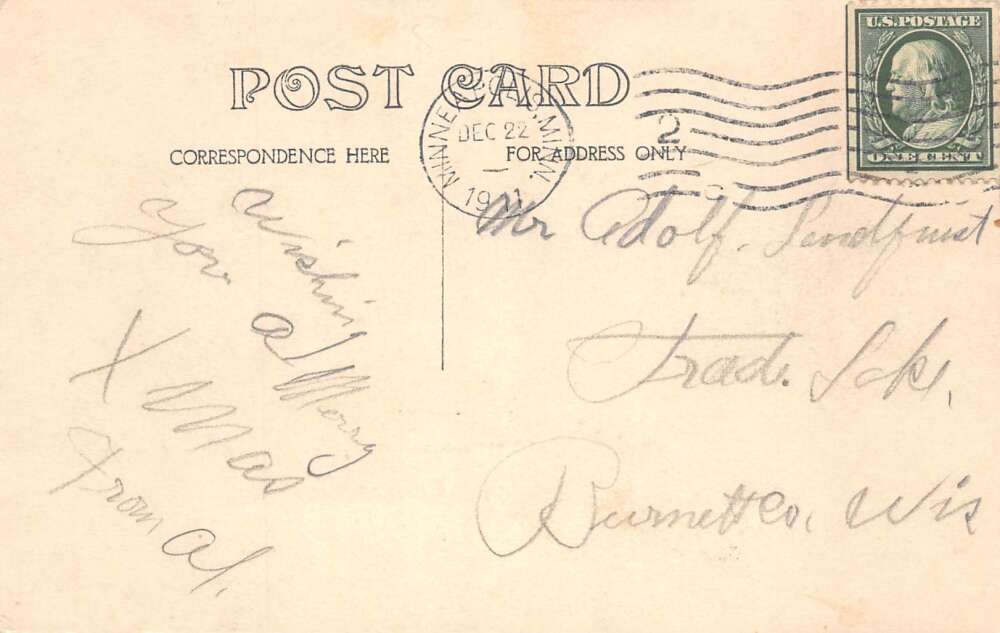 POST CARD
CORRESPONDENCE HERE
FOR ADDRESS ONLY
U.S. POSTAGE
ONE CENT
MINNEAPOLIS, MINN.
DEC 22
1
1911
2
Wishing
you a Merry
X Mas
From Al.
Mr Adolf.
Trade. Lake,
Burnett Co, Wis